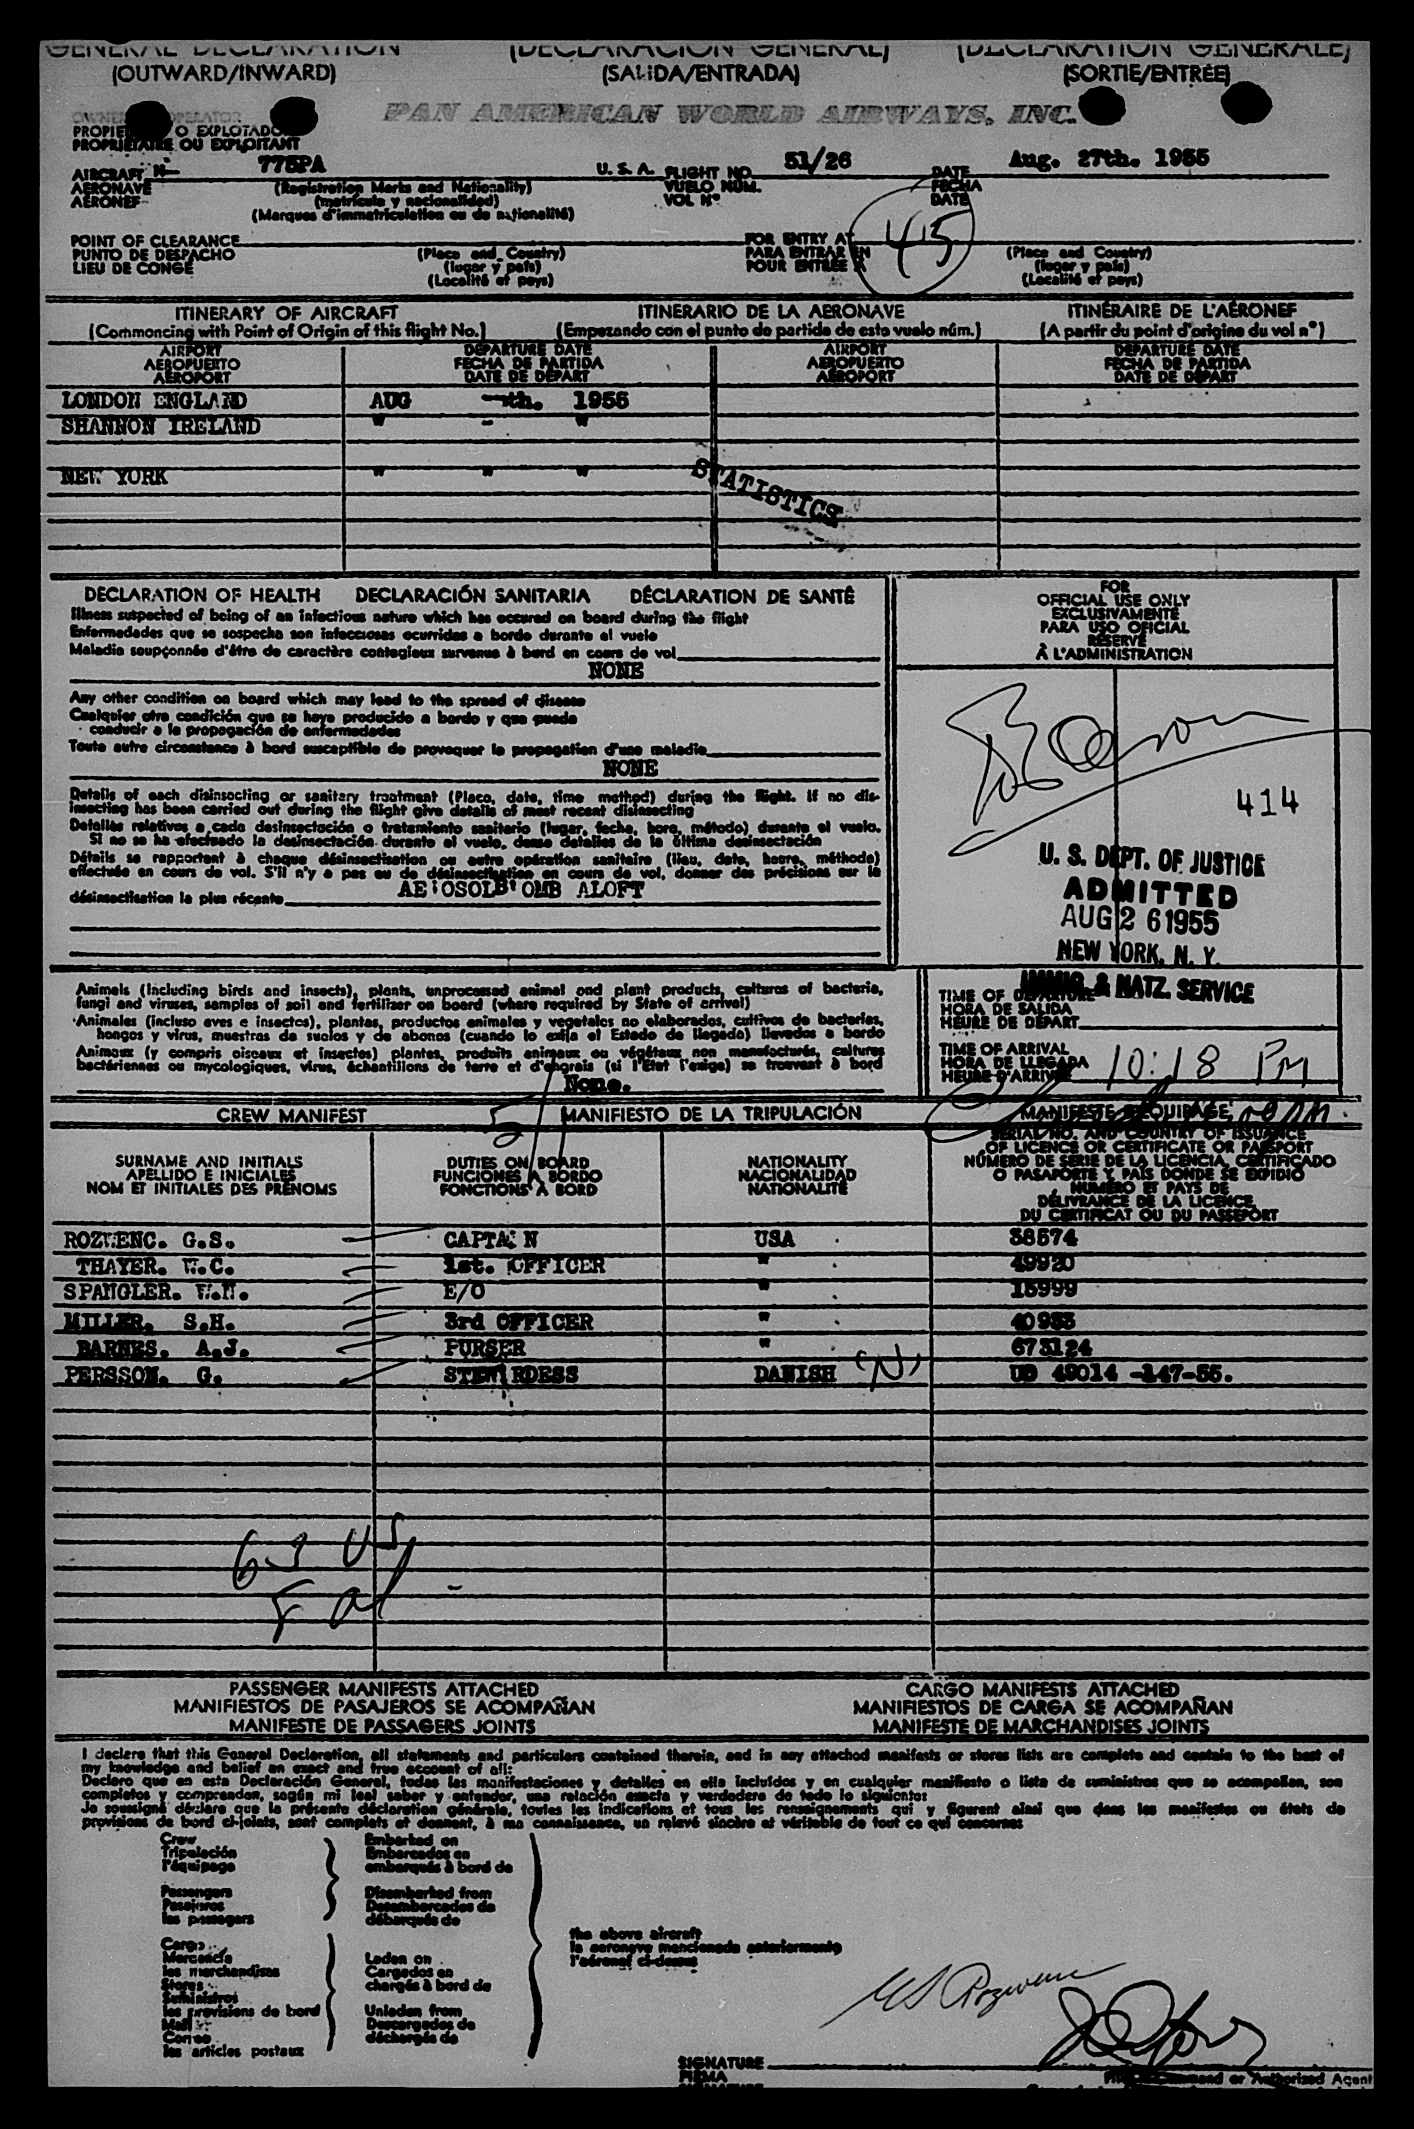 GENERAL DECLARATION (DECLARACIÓN GENERAL) (DÉCLARATION GÉNÉRALE)
(OUTWARD/INWARD) (SALIDA/ENTRADA) (SORTIE/ENTRÉE)
PAN AMERICAN WORLD AIRWAYS, INC.
PROPIETARIO O EXPLOTADOR
PROPRIÉTAIRE OU EXPLOITANT
AIRCRAFT N- 775PA U. S. A. FLIGHT NO. 51/26 DATE Aug. 27th. 1955
AERONAVE (Registration Marks and Nationality) VUELO NÚM. FECHA
AÉRONEF (matrícula y nacionalidad) VOL Nº DATE
(Marques d'immatriculation ou de nationalité)
45
POINT OF CLEARANCE FOR ENTRY AT
PUNTO DE DESPACHO (Place and Country) PARA ENTRAR EN (Place and Country)
LIEU DE CONGÉ (lugar y país) POUR ENTRÉE À (lugar y país)
(Localité et pays) (Localité et pays)
ITINERARY OF AIRCRAFT ITINERARIO DE LA AERONAVE ITINÉRAIRE DE L'AÉRONEF
(Commencing with Point of Origin of this flight No.) (Empezando con el punto de partida de este vuelo núm.) (A partir du point d'origine du vol nº)
AIRPORT DEPARTURE DATE AIRPORT DEPARTURE DATE
AEROPUERTO FECHA DE PARTIDA AEROPUERTO FECHA DE PARTIDA
AÉROPORT DATE DE DÉPART AÉROPORT DATE DE DÉPART
LONDON ENGLAND AUG th. 1955
SHANNON IRELAND " - "
NEW YORK " " "
STATISTICS
DECLARATION OF HEALTH DECLARACIÓN SANITARIA DÉCLARATION DE SANTÉ
Illness suspected of being of an infectious nature which has occured on board during the flight
Enfermedades que se sospecha son infecciosas ocurridas a bordo durante el vuelo
Maladie soupçonnée d'être de caractère contagieux survenue à bord en cours de vol
NONE
Any other condition on board which may lead to the spread of disease
Cualquier otra condición que se haya producido a bordo y que pueda
conducir a la propagación de enfermedades
Toute autre circonstance à bord susceptible de provoquer la propagation d'une maladie
NONE
Details of each disinsecting or sanitary treatment (Place, date, time method) during the flight. If no dis-
insecting has been carried out during the flight give details of most recent disinsecting
Detalles relativos a cada desinsectación o tratamiento sanitario (lugar, fecha, hora, método) durante el vuelo.
Si no se ha efectuado la desinsectación durante el vuelo, dense detalles de la última desinsectación
Détails se rapportant à chaque désinsectisation ou autre opération sanitaire (lieu, date, heure, méthode)
effectuée en cours de vol. S'il n'y a pas eu de désinsectisation en cours de vol, donner des précisions sur la
désinsectisation la plus récente AE OSOLB OMB ALOFT
FOR
OFFICIAL USE ONLY
EXCLUSIVAMENTE
PARA USO OFICIAL
RÉSERVÉ
À L'ADMINISTRATION
414
U. S. DEPT. OF JUSTICE
ADMITTED
AUG 26 1955
NEW YORK, N. Y.
IMMIG. & NATZ. SERVICE
Animals (Including birds and insects), plants, unprocessed animal and plant products, cultures of bacteria,
fungi and viruses, samples of soil and fertilizer on board (where required by State of arrival)
Animales (incluso aves e insectos), plantas, productos animales y vegetales no elaborados, cultivos de bacterias,
hongos y virus, muestras de suelos y de abonos (cuando lo exija el Estado de llegada) llevados a bordo
Animaux (y compris oiseaux et insectes) plantes, produits animaux ou végétaux non manufacturés, cultures
bactériennes ou mycologiques, virus, échantillons de terre et d'engrais (si l'Etat l'exige) se trouvant à bord
None.
TIME OF DEPARTURE
HORA DE SALIDA
HEURE DE DÉPART
TIME OF ARRIVAL
HORA DE LLEGADA
HEURE D'ARRIVÉE 10:18 PM
CREW MANIFEST 5/1 MANIFIESTO DE LA TRIPULACIÓN MANIFESTE D'ÉQUIPAGE
SERIAL NO. AND COUNTRY OF ISSUANCE
OF LICENCE OR CERTIFICATE OR PASSPORT
SURNAME AND INITIALS DUTIES ON BOARD NATIONALITY NÚMERO DE SERIE DE LA LICENCIA, CERTIFICADO
APELLIDO E INICIALES FUNCIONES A BORDO NACIONALIDAD O PASAPORTE Y PAÍS DONDE SE EXPIDIÓ
NOM ET INITIALES DES PRÉNOMS FONCTIONS À BORD NATIONALITÉ NUMÉRO ET PAYS DE
DÉLIVRANCE DE LA LICENCE,
DU CERTIFICAT OU DU PASSEPORT
ROZWENC. G.S. CAPTAIN USA 38574
THAYER. W.C. 1st. OFFICER " 49920
SPANGLER. W.N. E/O " 15999
MILLER. S.H. 3rd OFFICER " 40933
BARNES. A.J. PURSER " 673124
PERSSON. G. STEWARDESS DANISH (N) UD 49014 -147-55.
63 US
5 al
PASSENGER MANIFESTS ATTACHED CARGO MANIFESTS ATTACHED
MANIFIESTOS DE PASAJEROS SE ACOMPAÑAN MANIFIESTOS DE CARGA SE ACOMPAÑAN
MANIFESTE DE PASSAGERS JOINTS MANIFESTE DE MARCHANDISES JOINTS
I declare that this General Declaration, all statements and particulars contained therein, and in any attached manifests or stores lists are complete and contain to the best of
my knowledge and belief an exact and true account of all:
Declaro que en esta Declaración General, todas las manifestaciones y detalles en ella incluídos y en cualquier manifiesto o lista de suministros que se acompañan, son
completos y comprenden, según mi leal saber y entender, una relación exacta y verdadera de todo lo siguiente:
Je soussigné déclare que la présente déclaration générale, toutes les indications et tous les renseignements qui y figurent ainsi que dans les manifestes ou états de
provisions de bord ci-joints, sont complets et donnent, à ma connaissance, un relevé sincère et véritable de tout ce qui concerne:
Crew Embarked on
Tripulación Embarcados en
l'équipage embarqués à bord de
Passengers Disembarked from
Pasajeros Desembarcados de
les passagers débarqués de
the above aircraft
la aeronave mencionada anteriormente
l'aéronef ci-dessus
Cargo
Mercancía Laden on
les marchandises Cargados en
Stores chargés à bord de
Suministros
les provisions de bord Unladen from
Mail Descargados de
Correo déchargés de
les articles postaux
G S Rozwenc
SIGNATURE
FIRMA Pilot in Command or Authorized Agent